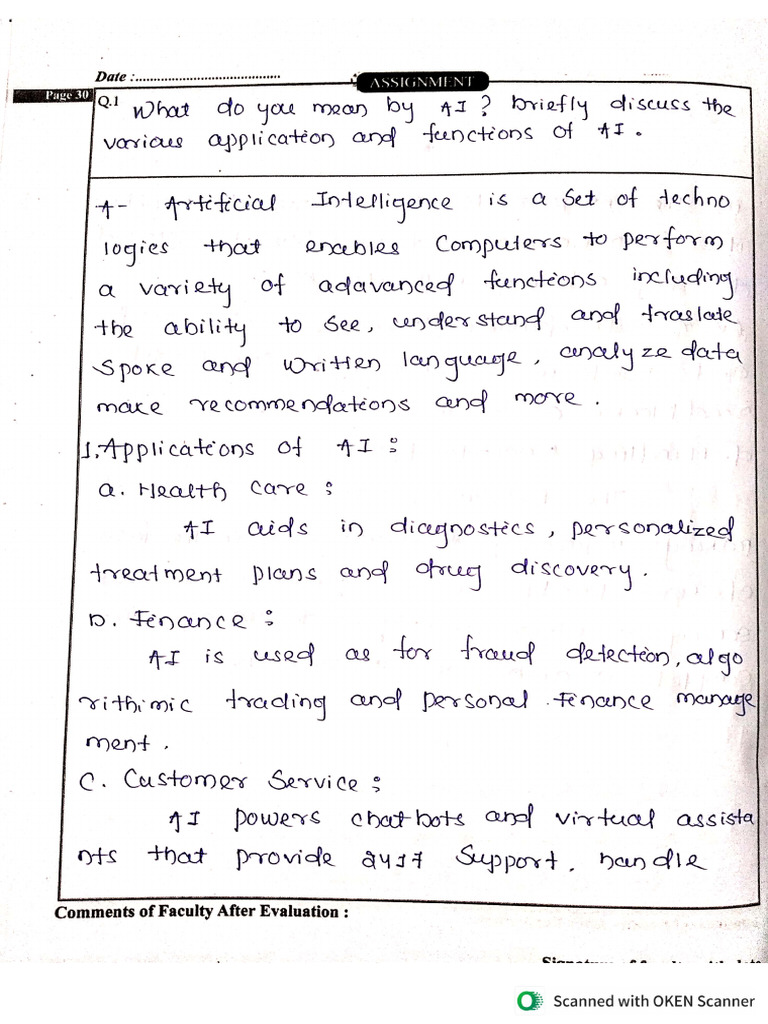 Date :........................................
ASSIGNMENT
Page 30
Q.1 What do you mean by AI? briefly discuss the
various application and functions of AI.
A- Artificial Intelligence is a set of techno
logies that enables Computers to perform
a variety of adavanced functions including
the ability to see, understand and traslate
spoke and written language, analyze data
make recommendations and more.
1. Applications of AI :
a. Health care :
AI aids in diagnostics, personalized
treatment plans and drug discovery.
b. Finance :
AI is used as for fraud detection, algo
rithimic trading and personal Finance manage
ment.
C. Customer Service :
AI powers chatbots and virtual assista
nts that provide 2417 Support, handle
Comments of Faculty After Evaluation :
Scanned with OKEN Scanner